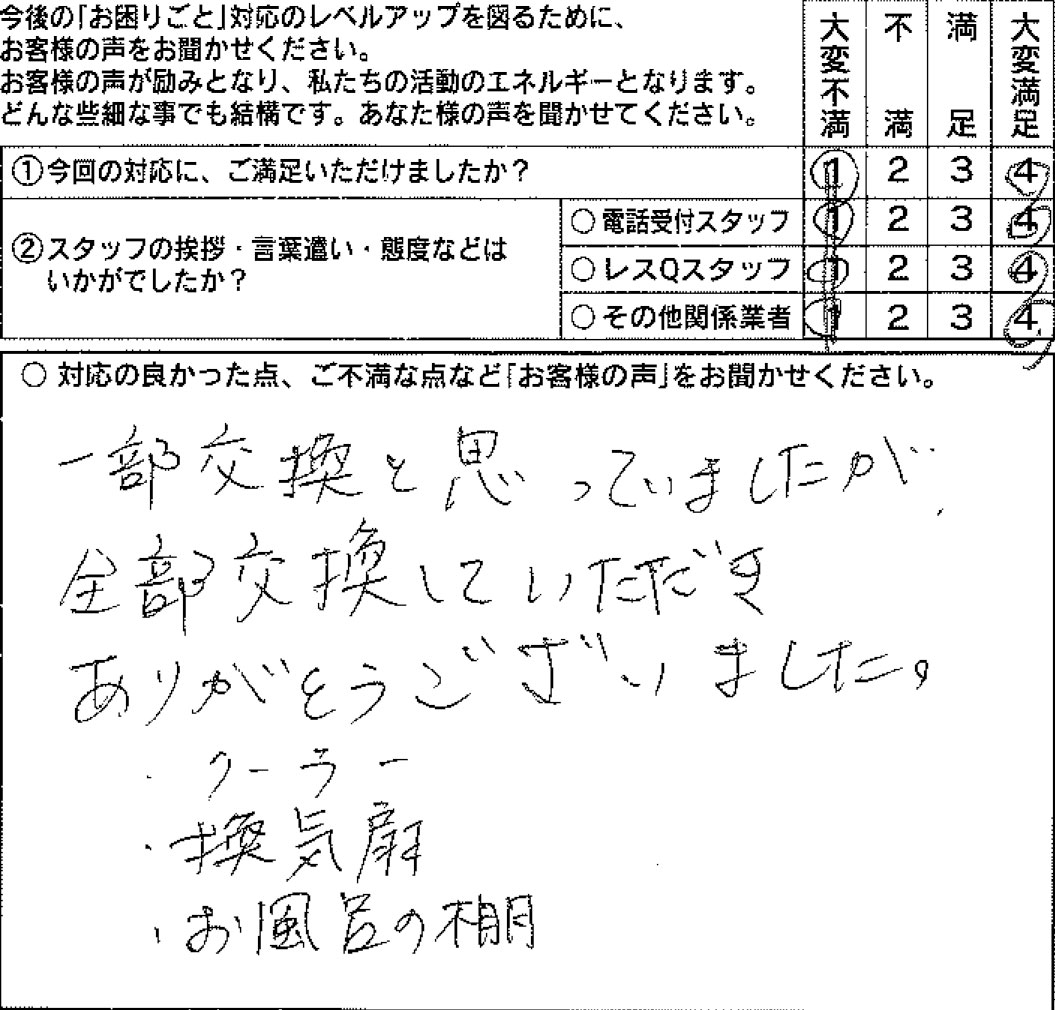 今後の「お困りごと」対応のレベルアップを図るために、
お客様の声をお聞かせください。
お客様の声が励みとなり、私たちの活動のエネルギーとなります。
どんな些細な事でも結構です。あなた様の声を聞かせてください。
大変不満 不満 満足 大変満足
①今回の対応に、ご満足いただけましたか？ 1 2 3 4
②スタッフの挨拶・言葉遣い・態度などは
いかがでしたか？
○電話受付スタッフ 1 2 3 4
○レスQスタッフ 1 2 3 4
○その他関係業者 1 2 3 4
○ 対応の良かった点、ご不満な点など「お客様の声」をお聞かせください。
一部交換と思っていましたが、
全部交換していただき
ありがとうございました。
・クーラー
・換気扇
・お風呂の棚